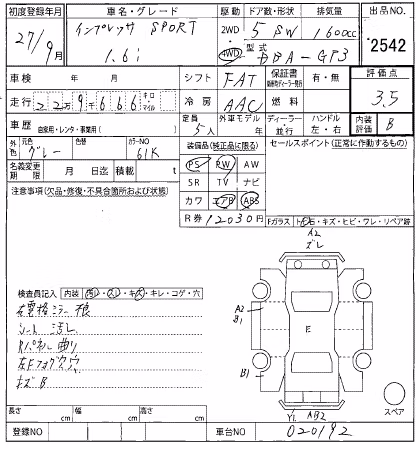 初度登録年月 車名・グレード 駆動 ドア数・形状 排気量 出品NO.
27/9月 インプレッサ SPORT 1.6i 2WD 4WD 5 SW 1600cc 2542
型式 DBA-GP3
車検 年 月 シフト FAT 保証書 有・無 評価点
走行 22万9千666 キロ マイル 冷房 AAC 燃料 3.5
車歴 自家用・レンタ・事業用( ) 定員 5人 外車モデル 年 ディーラー 並行 ハンドル 左・右 内装評価 B
外色 元色 グレー 色替 カラーNO 61K 装備品(純正品に限る) セールスポイント(正常に作動するもの)
名義変更期限 月 日迄 積載 t PS PW AW
注意事項(欠品・修復・不具合箇所および状態) SR TV ナビ
カワ エアB ABS
R券 12030円 Fガラス トビ石・キズ・ヒビ・ワレ・リペア跡
A2
ズレ
検査員記入 内装 汚レ・スレ・キズ・キレ・コゲ・穴
右電格ミラー
シート 汚し
Rパネル 曲り
左Fフォグ
キズ B
A2
B1
E
B1
スペア
長さ cm 幅 cm 高さ cm
登録NO 車台NO 020192